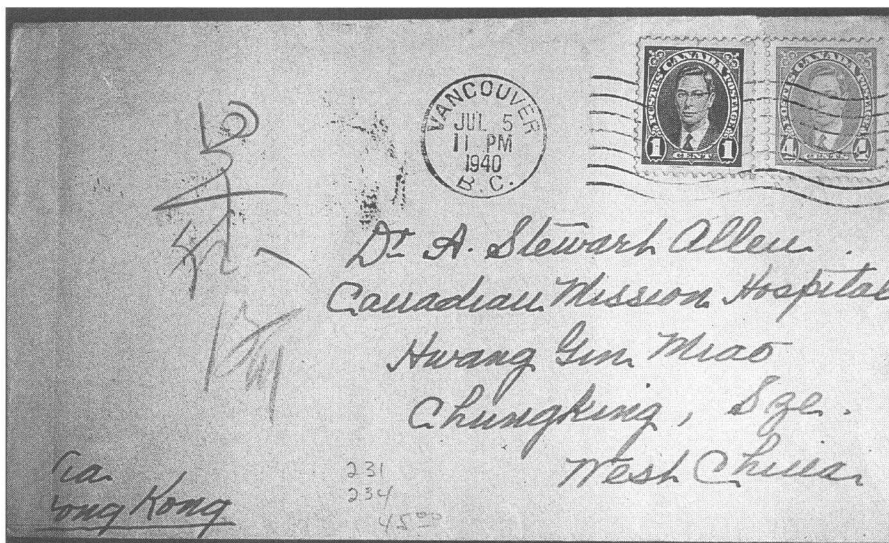 VANCOUVER
JUL 5
11 PM
1940
B.C.
POSTES CANADA POSTAGE
1 CENT 1
POSTES CANADA POSTAGE
4 CENTS 4
Dr. A. Stewart Allen
Canadian Mission Hospital
Hwang Gin Miao
Chungking, Sze.
West China
ia
ong Kong
231
234
4500